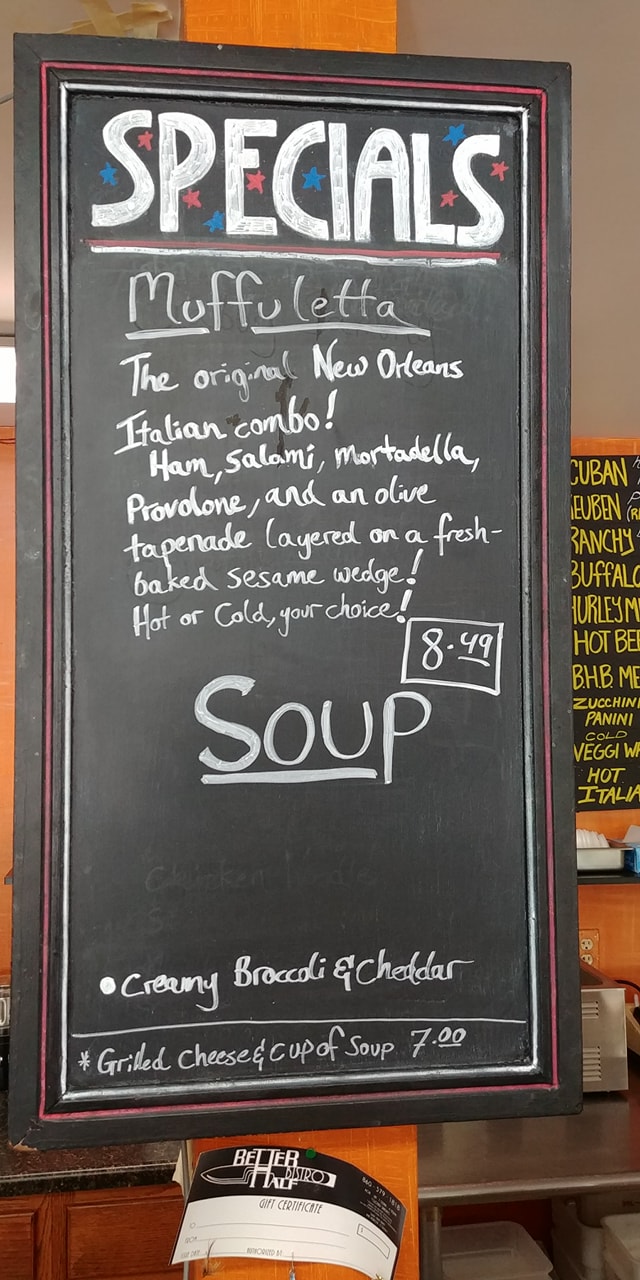 SPECIALS
Muffuletta
The original New Orleans
Italian combo!
Ham, Salami, mortadella,
Provolone, and an olive
tapenade layered on a fresh-
baked sesame wedge!
Hot or Cold, your choice!
8.49
SOUP
• Creamy Broccoli & Cheddar
* Grilled Cheese & Cup of Soup 7.00
CUBAN
EUBEN
RANCHY
BUFFALO
HURLEY M
HOT BEE
B.H.B. ME
ZUCCHINI
PANINI
COLD
VEGGI W
HOT
ITALIA
BETTER
HALF BISTRO
GIFT CERTIFICATE
AUTHORIZED BY: